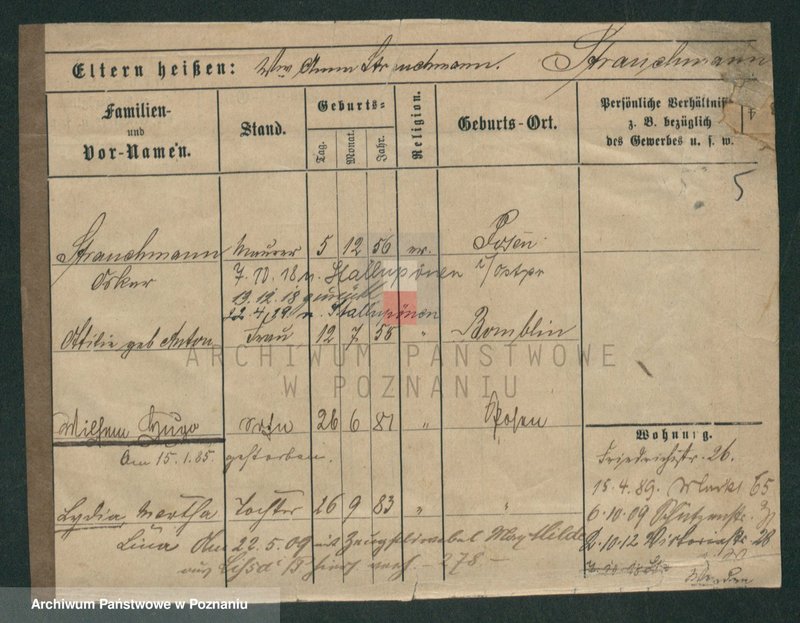 Eltern heißen: Ww Anna Strauchmann. Strauchmann
Familien-
und
Vor-Namen.
Stand.
Geburts-
Tag.
Monat.
Jahr.
Religion.
Geburts-Ort.
Persönliche Verhältnis
z. B. bezüglich
des Gewerbes u. s. w.
5
Strauchmann Maurer 5 12 56 ev. Posen
Oskar 7. 10. 18 n. Stallupönen i/Ostpr
13. 12. 18 zurück
22. 4. 19 n. Stallupönen
Ottilie geb Anton Frau 12 7 58 " Bomblin
ARCHIWUM PAŃSTWOWE
W POZNANIU
Wilhelm Hugo Sohn 26 6 81 " Posen
Am 15. 1. 85. gestorben.
Wohnung.
Friedrichstr. 26.
15. 4. 89. Markt 65
Lydia, Martha Tochter 26 9 83 " "
6. 10. 09 Schützenstr.
Lina Am 22. 5. 09 mit Zeugfeldwebel Max Milde
2. 10. 12 Victoriastr 28
aus hier verh. - 278 -
Archiwum Państwowe w Poznaniu